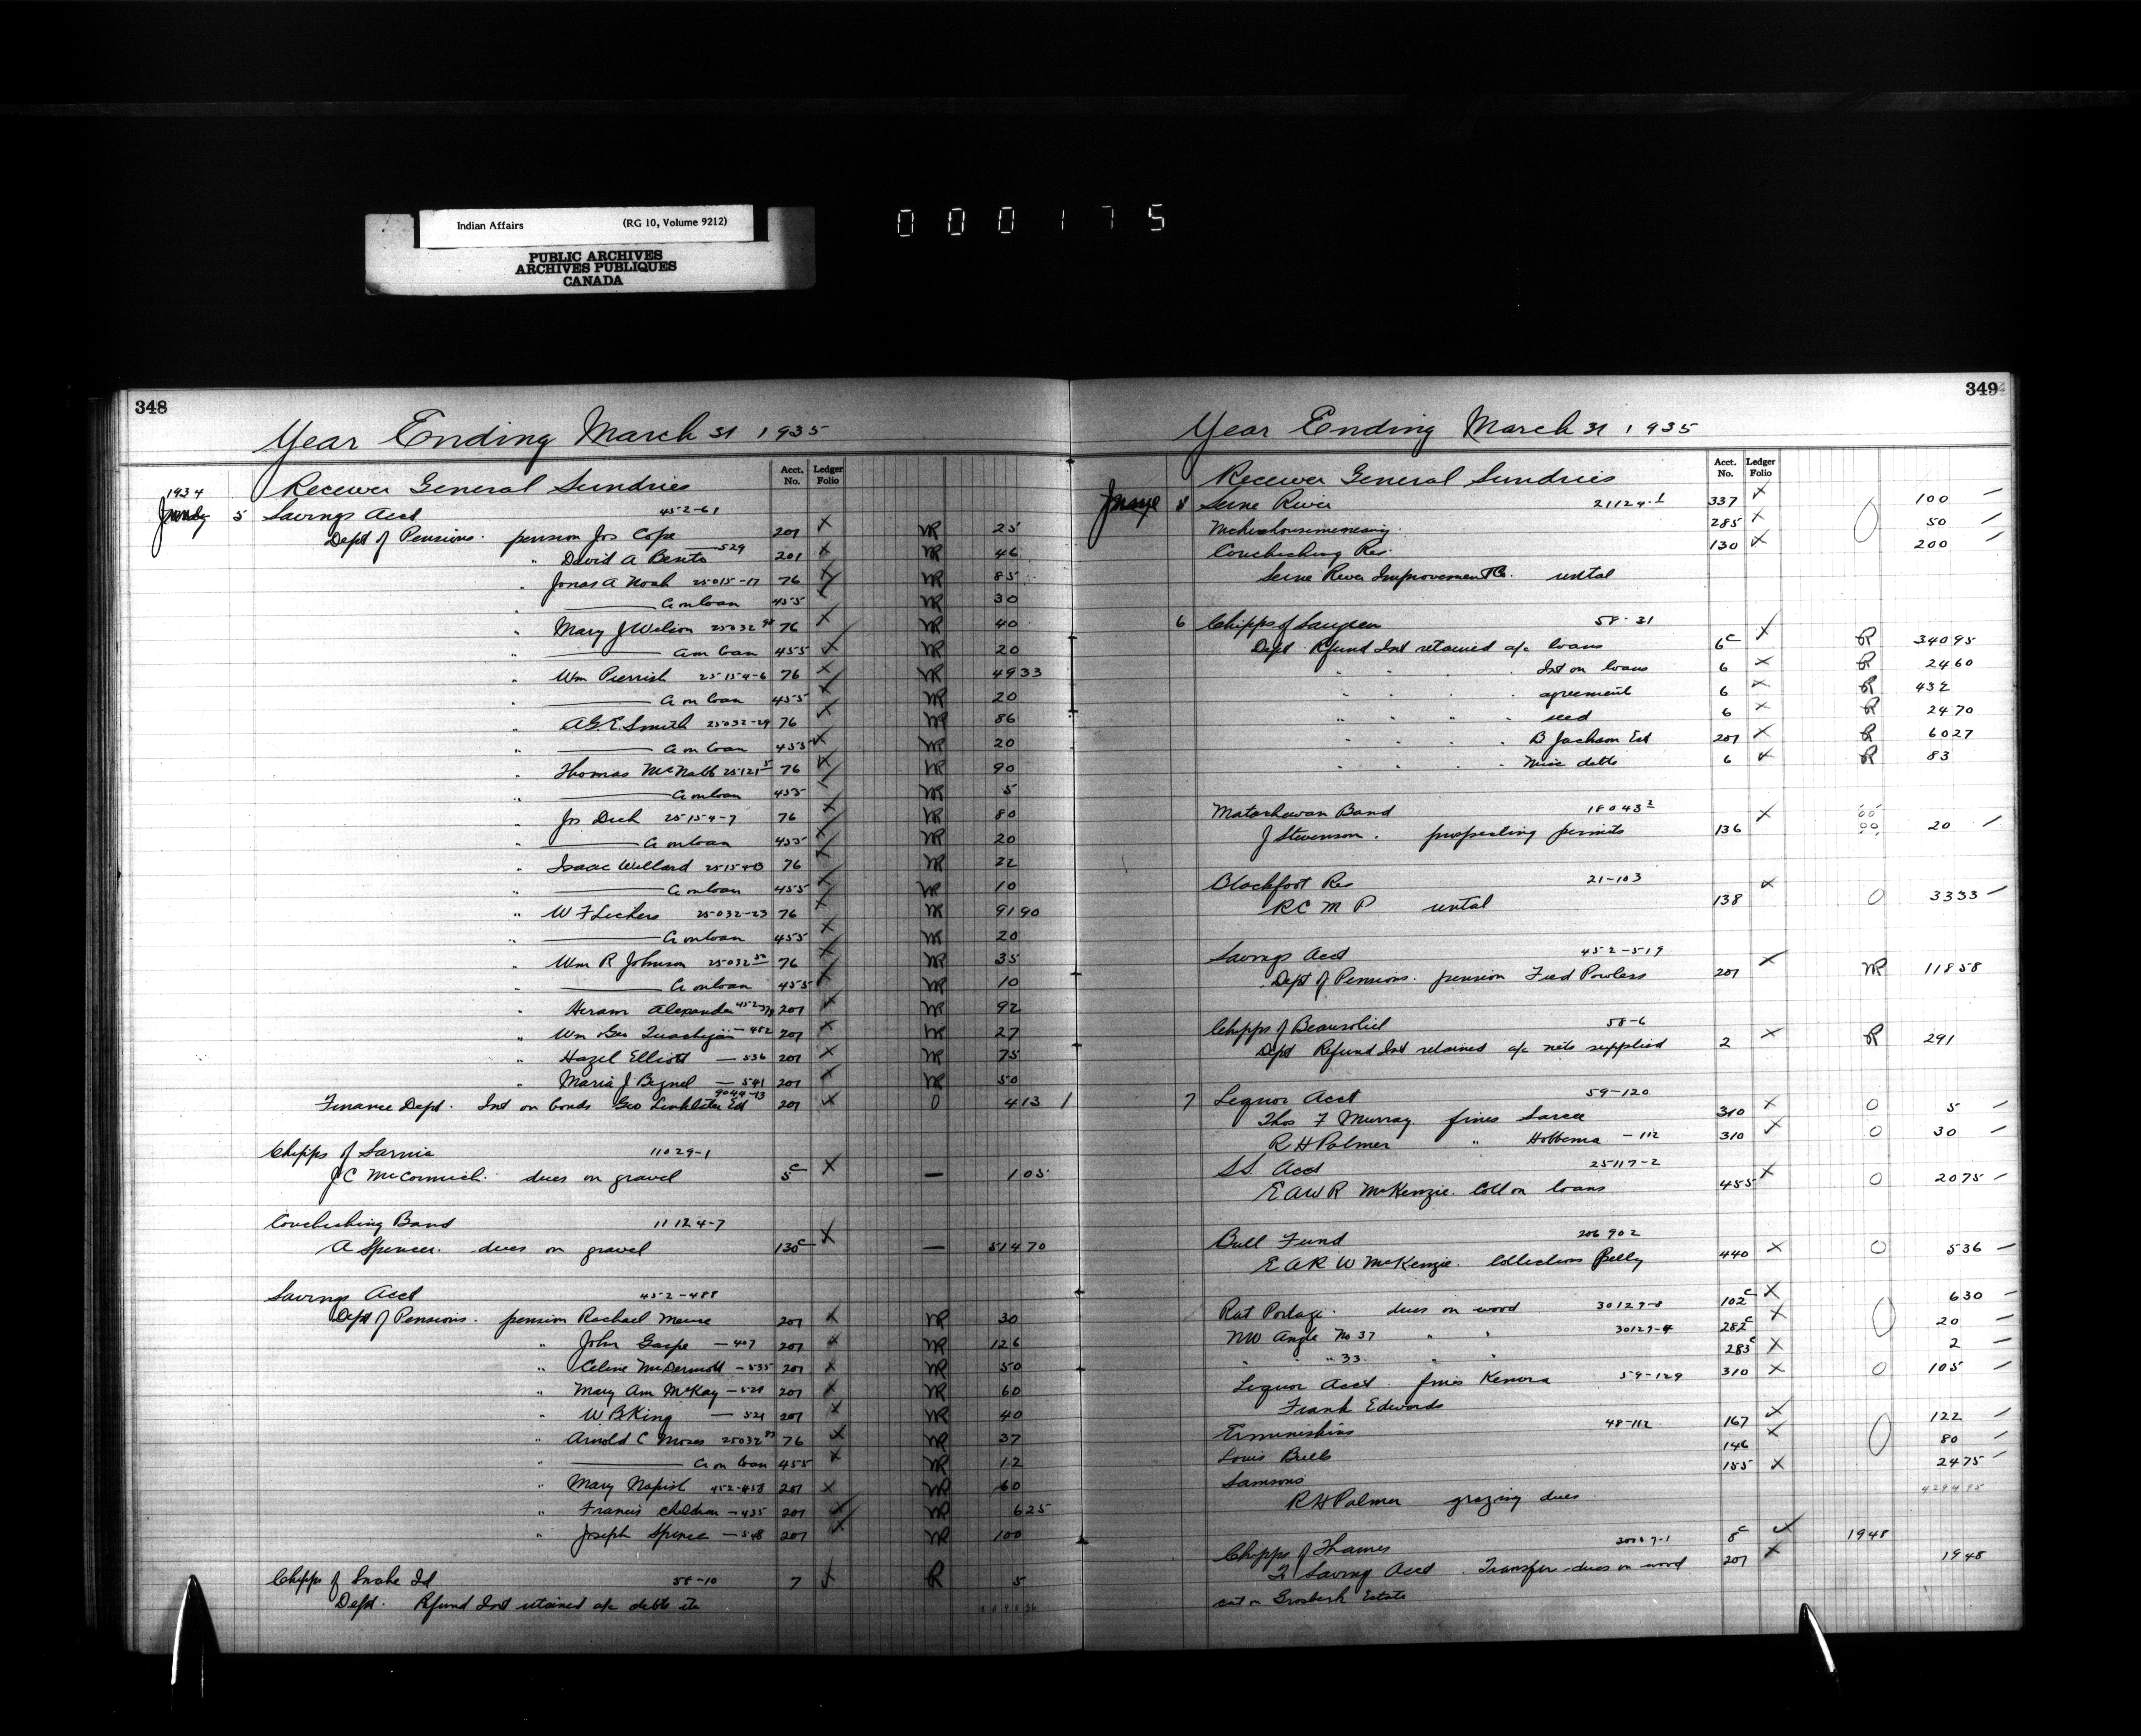 Indian Affairs (RG 10, Volume 9212)
PUBLIC ARCHIVES
ARCHIVES PUBLIQUES
CANADA
000175
348
Year Ending March 31 1935
Acct. No. Ledger Folio
1934 Receiver General Sundries
5 Savings Acct 452-61
Dept of Pensions. pension Jos Cope 201 X NR 25
" David A 529 201 X NR 46
" Jonas A Noah 25015-17 76 X NR 85
" A on loan 455 NR 30
" Mary J Wilson 25032 76 X NR 40
" A on loan 455 X NR 20
" Wm 25154-6 76 X NR 4933
" A on loan 455 X NR 20
" A.G.E. Smith 25032-29 76 X NR 86
" A on loan 455 X NR 20
" Thomas McNabb 25121-5 76 X NR 90
" A on loan 455 NR 5
" Jos Dech 25154-7 76 X NR 80
" A on loan 455 X NR 20
" Isaac Willard 25154-13 76 X NR 22
" A on loan 455 X NR 10
" W F Lickers 25032-23 76 X NR 9190
" A on loan 455 X NR 20
" Wm R Johnson 25032 76 X NR 35
" A on loan 455 X NR 10
" Hiram Alexander 207 X NR 92
" Wm Geo - 452 207 X NR 27
" Hazel Elliott — 536 207 X NR 75
" Maria J — 541 207 X NR 50
Finance Dept. Int on bonds Geo Linklater Est 9044-13 207 X 0 413 /
Chipps of Sarnia 11029-1
J C McCormick. dues on gravel 5c X — 105
Couchiching Band 11124-7
A Spencer. dues on gravel 130c X — 51470
Savings Acct 452-488
Dept of Pensions. pension Rachael 207 X NR 30
" John Gaspe — 407 207 X NR 126
" Celine McDermott — 535 207 X NR 50
" Mary Ann McKay — 207 X NR 60
" W B King — 521 207 X NR 40
" Arnold C Moses 25032 76 X NR 37
" A on loan 455 X NR 12
" Mary Napish 452-458 207 X NR 60
" Francis children — 435 207 X NR 625
" Joseph Spence — 548 207 X NR 100
Chipps of Snake Id 58-10 7 X R 5
Dept. Refund Int retained a/c debts etc
349
Year Ending March 31 1935
Acct. No. Ledger Folio
Receiver General Sundries
Seine River 21124-1 337 X 100
285 X 0 50
Couchiching Res. 130 X 200
Seine River Improvement Co. rental
6 Chipps of Saugeen 58-31
Dept Refund Int retained a/c loans 6c X R 34095
" " Int on loans 6 X R 2460
" " agreement 6 X R 432
" " " " seed 6 X R 2470
" " " " B Jackson Est 207 X R 6027
" " " " Misc debts 6 X R 83
Matachewan Band 18043-2
J Stevenson. prospecting permits 136 X 20
Blackfoot Res 21-103
R C M P rental 138 X 0 3333
Savings Acct 452-519
Dept of Pensions. pension Fred Powless 207 X NR 11858
Chipps of Beausoliel 58-6
Dept Refund Int retained a/c nets supplied 2 X R 291
7 Liquor Acct 59-120
Thos F Murray. fines Sarcee 310 X 0 5
R H Palmer " Hobbema - 112 310 X 0 30
S.S. Acct 25117-2
E A W R McKenzie. Coll on loans 455 X 0 2075
Bull Fund 206902
E A R W McKenzie. Collections Pelly 440 X 0 536
Rat Portage. dues on wood 30129-8 102c X 630
NW Angle No 37 " " 30129-4 282c X 0 20
" " " 33 " " 283c X 2
Liquor Acct. fines Kenora 59-129 310 X 0 105
Frank Edwards
Ermineskins 48-112 167 X 122
Louis Bulls 146 X 0 80
Samsons 155 X 2475
R H Palmer grazing dues 429495
Chipps of Thames 8c X 1948
To Saving Acct. Transfer dues on wood 207 X 1948
cut on Estate